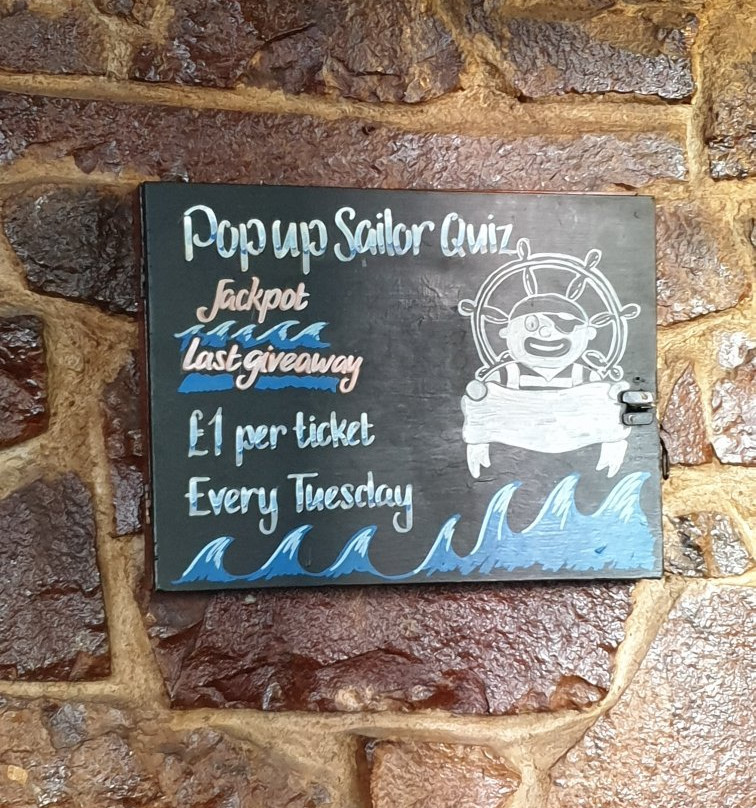 Pop up Sailor Quiz
Jackpot
Last giveaway
£1 per ticket
Every Tuesday